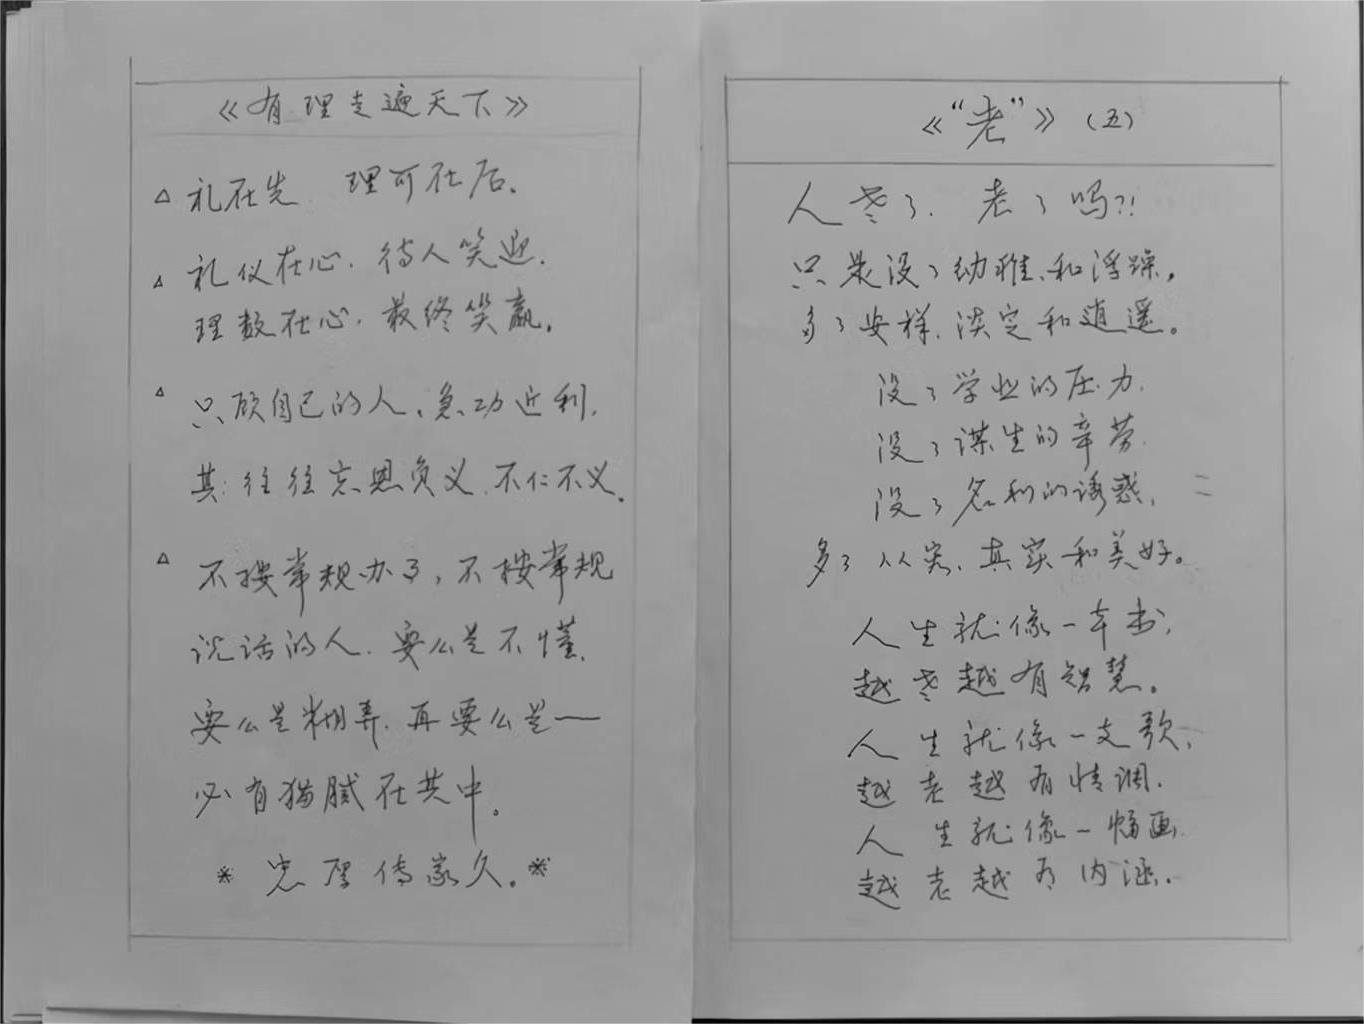 《有理走遍天下》
△ 礼在先、理可在后。
△ 礼仪在心、待人笑迎、
理数在心、最终笑赢。
△ 只顾自己的人、急功近利、
其：往往忘恩负义、不仁不义。
△ 不按常规办事，不按常规
说话的人、要么是不懂、
要么是糊弄、再要么是——
必有猫腻在其中。
* 忠厚传家久。*
《“老”》（五）
人老了、老了吗?!
只是没了幼稚、和浮躁，
多了安祥、淡定和逍遥。
没了学业的压力、
没了谋生的辛劳、
没了名利的诱惑、
多了从容、真实和美好。
人生就像一本书，
越老越有智慧。
人生就像一支歌、
越老越有情调、
人生就像一幅画、
越老越有内涵.